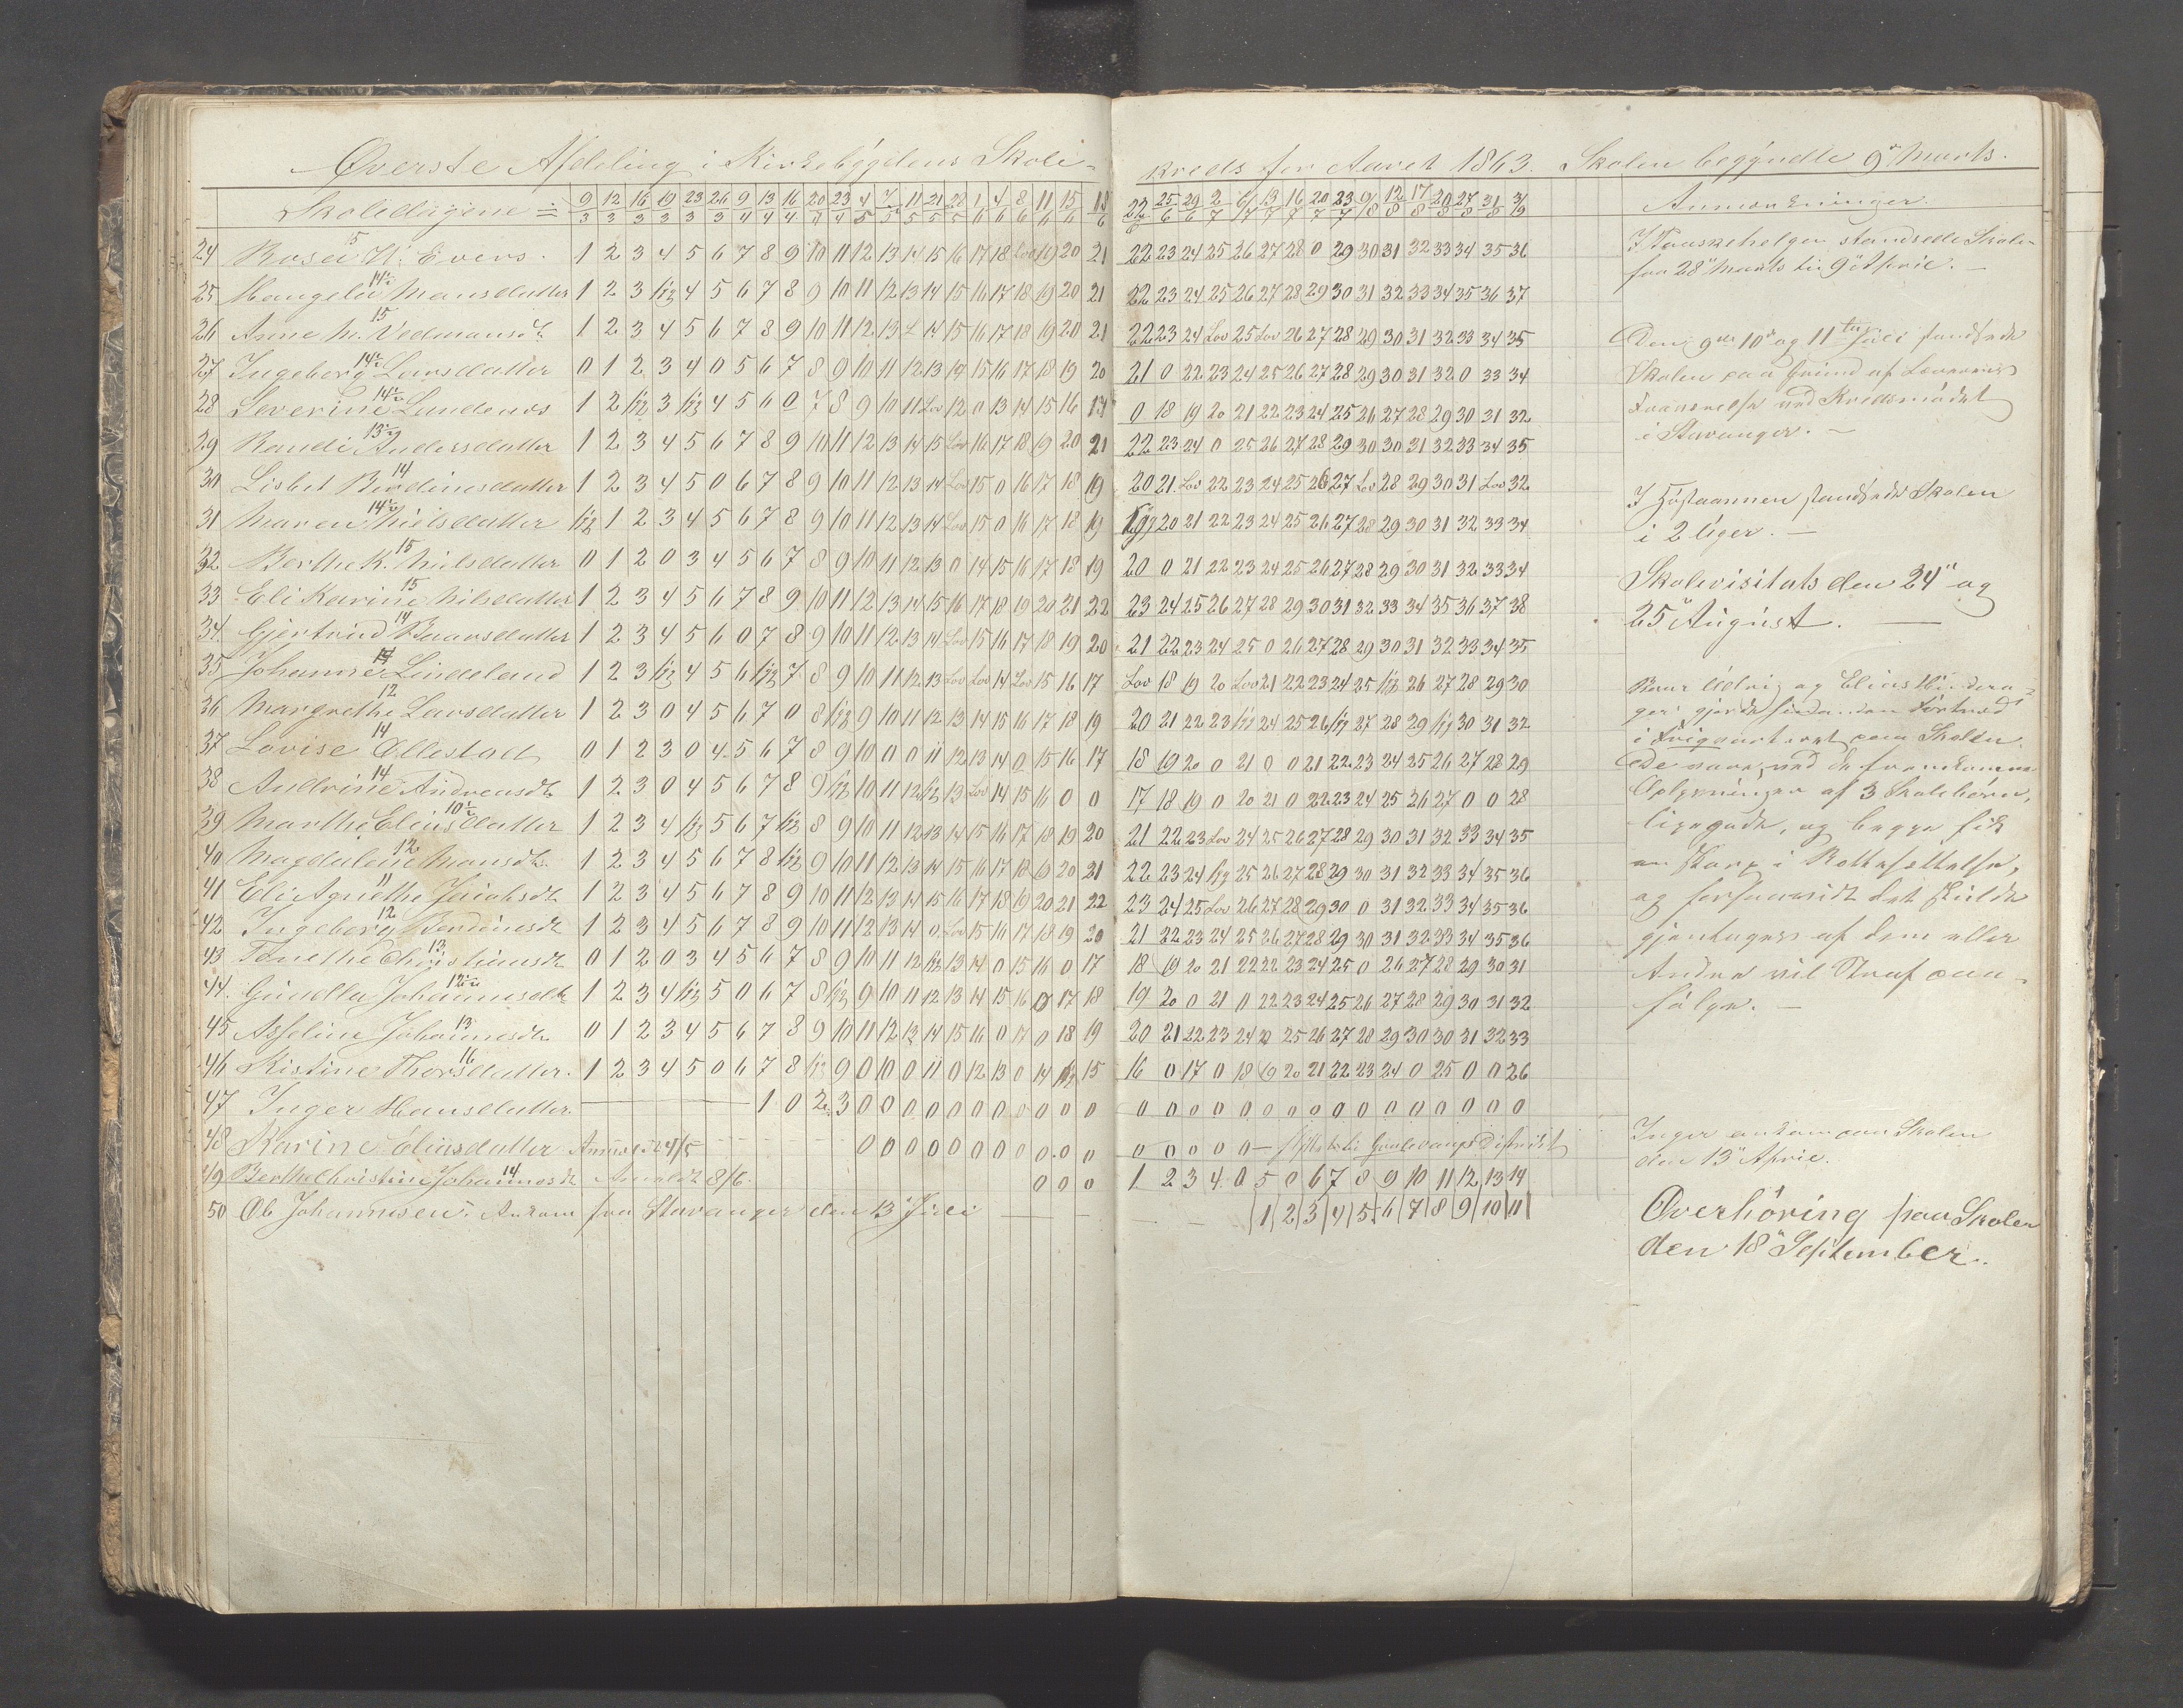 Øverste Afdeling i Kirkebygdens Skole-
kreds for Aaret 1863. Skolen begyndte 9de Marts.
Skoledagene = 9/3 12/3 16/3 19/3 23/3 26/3 9/4 13/4 16/4 20/4 23/4 4/5 7/5 11/5 21/5 28/5 1/6 4/6 8/6 11/6 15/6 18/6 22/6 25/6 29/6 2/7 6/7 13/7 16/7 20/7 23/7 9/8 12/8 17/8 20/8 27/8 31/8 3/9 Anmærkninger.
24 Rosa H. Evers. 1 2 3 4 5 6 7 8 9 10 11 12 13 14 15 16 17 18 Lov 19 20 21 22 23 24 25 26 27 28 0 29 30 31 32 33 34 35 36
25 Mansdatter 1 2 3 1/2 4 5 6 7 8 9 10 11 12 13 14 15 16 17 18 19 20 21 22 23 24 25 26 27 28 29 30 31 32 33 34 35 36 37
26 Anne M. 15 1 2 3 4 5 6 7 8 9 10 11 12 13 L 14 15 16 17 18 19 20 21 22 23 24 Lov 25 Lov 26 27 28 29 30 31 32 33 34 35
27 Ingeborg Larsdatter 0 1 2 3 4 0 5 6 7 8 9 10 11 12 13 14 15 16 17 18 19 20 21 0 22 23 24 25 26 27 28 29 30 31 32 0 33 34
28 Severine Lundenes 1 2 1/2 3 1/2 4 5 6 0 7 8 9 10 11 Lov 12 0 13 14 15 16 17 0 18 19 20 21 22 23 24 25 26 27 28 29 30 31 32
29 Randi Andersdatter 1 2 3 4 5 6 7 8 9 10 11 12 13 14 15 Lov 16 17 18 19 20 21 22 23 24 0 25 26 27 28 29 30 30 31 32 33 34 35
30 Lisbet Berdinesdatter 14 1 2 3 4 5 0 6 7 8 9 10 11 12 13 14 Lov 15 0 16 17 18 19 20 21 Lov 22 23 24 25 26 27 Lov 28 29 30 31 Lov 32
31 Maren Nielsdatter 1/2 1 2 3 4 5 6 7 8 9 10 11 12 13 14 Lov 15 0 16 17 18 19 20 21 22 23 24 25 26 27 28 29 30 31 32 33 34
32 Berthe K. Nielsdatter 15 0 1 2 0 3 4 5 6 7 8 9 10 11 12 13 0 14 15 16 17 18 19 20 0 21 22 23 24 25 26 27 28 29 30 31 32 33 34
33 Eli Karine Nilsdatter 15 1 2 3 4 5 6 7 8 9 10 11 12 13 14 15 16 17 18 19 20 21 22 23 24 25 26 27 28 29 30 31 32 33 34 35 36 37 38
34 Gjertrud Baarsdatter 14 1 2 3 4 5 6 0 7 8 9 10 11 12 13 14 Lov 15 16 17 18 19 20 21 22 23 24 25 0 26 27 28 29 30 31 32 33 34 35
35 Johanne Lindeland 1 2 3 1/2 4 5 6 1/2 7 8 9 10 11 12 13 Lov Lov 14 Lov 15 16 17 Lov 18 19 20 Lov 21 22 23 24 25 1/2 26 27 28 29 30
36 Margrethe Larsdatter 12 1 2 3 0 4 5 6 7 0 8 1/2 9 10 11 12 13 14 15 16 17 18 19 20 21 22 23 1/2 24 25 26 1/2 27 28 29 1/2 30 31 32
37 Lovise Ollestad 14 0 1 2 3 0 4 5 6 7 8 9 10 0 0 11 12 13 14 0 15 16 17 18 19 20 0 21 0 0 21 22 23 24 25 26 27 28 29
38 Andrine Andreasdt 14 1 2 3 0 4 5 6 7 8 9 1/2 10 11 12 1/2 13 Lov 14 15 16 0 0 17 18 19 0 20 21 0 22 23 24 25 26 27 0 0 28
39 Marthe Eliasdatter 10½ 1 2 3 4 1/2 5 6 7 1/2 8 9 10 11 12 13 14 15 16 17 18 19 20 21 22 23 Lov 24 25 26 27 28 29 30 31 32 33 34 35
40 Magdalene Mansdt 12 1 2 3 4 5 6 7 8 1/2 9 10 11 12 13 14 15 16 17 18 19 20 21 22 23 24 1/2 25 26 27 28 29 30 31 32 33 34 35 36
41 Eli Agnethe Jacobsdt 11 1 2 3 4 5 6 7 8 9 10 11 12 13 14 15 16 17 18 19 20 21 22 23 24 25 Lov 26 27 28 29 30 0 31 32 33 34 35 36
42 Ingeborg Berdinesdt 12 1 2 3 4 5 6 7 8 9 10 11 12 13 14 0 Lov 15 16 17 18 19 20 21 22 23 24 25 26 27 28 29 30 31 32 33 34 35 36
43 Tonethe Christiansdt 13 0 1 2 0 3 4 5 6 7 8 9 10 11 12 1/2 13 14 0 15 16 0 17 18 19 20 21 22 22 23 24 25 0 26 27 28 29 30 31
44. Johannesdt 1 2 3 4 1/2 5 0 6 7 8 1/2 9 10 11 12 13 14 15 16 0 17 18 19 20 0 21 0 22 23 24 25 26 27 28 29 30 31 32
45 Asseline Johannesdt 13 0 1 2 3 4 5 6 7 8 9 10 11 12 13 14 15 16 0 17 0 18 19 20 21 22 23 24 25 26 27 28 29 30 30 31 32 33
46 Kistine Thorsdatter. 16 1 2 3 4 5 0 6 7 8 1/2 9 0 10 0 11 0 12 13 0 14 1/2 15 16 0 17 0 18 19 20 21 22 23 24 0 25 0 0 26
47 Inger Hansdatter. 1 0 2 3 0 0 0 0 0 0 0 0 0 0 0 0 0 0 0 0 0 0 0 0 0 0 0 0 0 0
48 Karine Eliasdatter 4/5 0 0 0 0 0 0 0 0 0 0 0 0 0 0 0 District
49 Berthe Christine Johannesdt 14 Anmeldt 8/6. 0 0 0 1 2 3 4 0 5 0 6 7 8 9 10 11 12 13 14
50 Ole Johannesen. Ankom fra Stavanger den 13de Juli 1 2 3 4 5 6 7 8 9 10 11
I Paaskehelgen standsede Skolen
fra 28de Marts til 9de April.
Den 9de 10de og 11te Juli standsede
Skolen paa Grund af Lærerens
Fraværelse ved Kredsmødet
i Stavanger.
I Høstaannen standsede Skolen
i 2 Uger.
Skolevisitats den 24de og
25de August.
og Elias
i Friqvarteret paa Skolen.
af 3 Skolebørn,
ligegode, og begge fik
en skarp i Rettesættelse,
og det skulde
gjentages af dem eller
Andre vil Straf paa-
følge.
Inger ankom paa Skolen
den 13de April.
Overhøring paa Skolen
den 18de September.